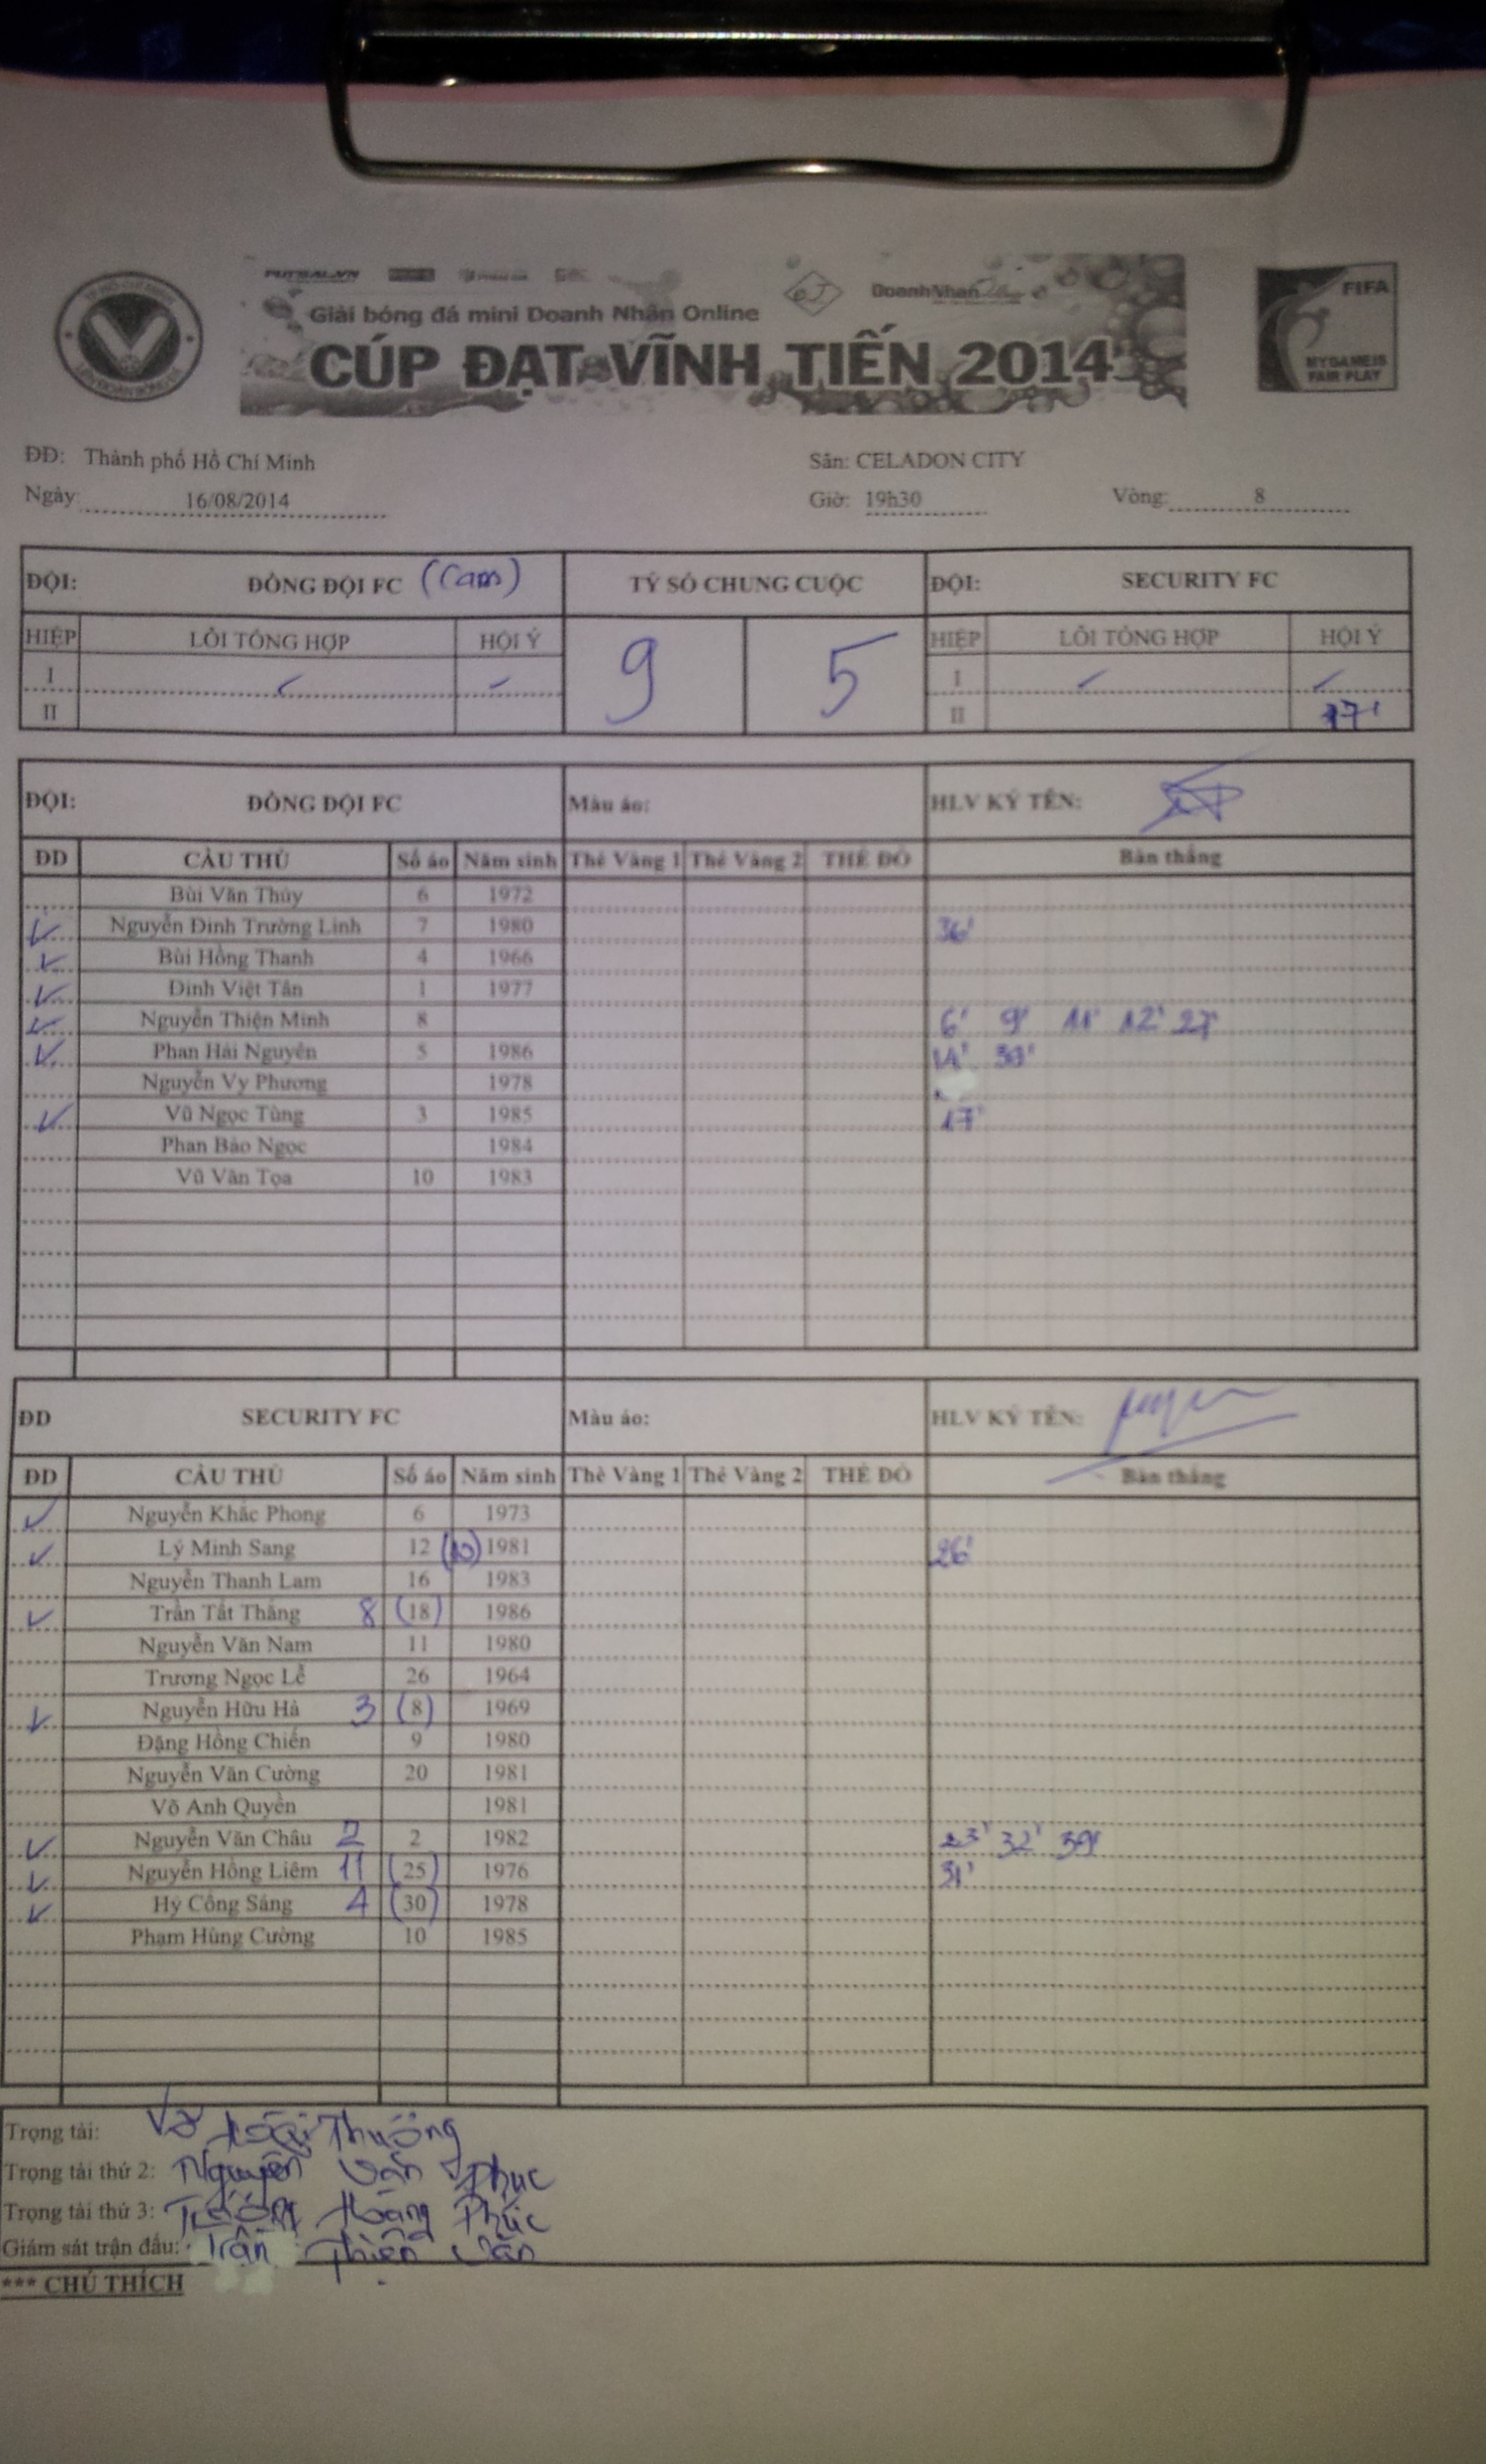 FUTSAL.VN
Giải bóng đá mini Doanh Nhân Online
DoanhNhan
CÚP ĐẠT VĨNH TIẾN 2014
FIFA
MY GAME IS
FAIR PLAY
ĐĐ: Thành phố Hồ Chí Minh Sân: CELADON CITY
Ngày: 16/08/2014 Giờ: 19h30 Vòng: 8
ĐỘI: ĐỒNG ĐỘI FC (Cam) TỶ SỐ CHUNG CUỘC ĐỘI: SECURITY FC
HIỆP LỖI TỔNG HỢP HỘI Ý 9 5 HIỆP LỖI TỔNG HỢP HỘI Ý
I I
II II 17'
ĐỘI: ĐỒNG ĐỘI FC Màu áo: HLV KÝ TÊN:
ĐD CẦU THỦ Số áo Năm sinh Thẻ Vàng 1 Thẻ Vàng 2 THẺ ĐỎ Bàn thắng
Bùi Văn Thủy 6 1972
Nguyễn Đinh Trường Linh 7 1980 36'
Bùi Hồng Thanh 4 1966
Đinh Việt Tân 1 1977
Nguyễn Thiện Minh 8 6' 9' 11' 12' 27'
Phan Hải Nguyên 5 1986 14' 30'
Nguyễn Vy Phương 1978
Vũ Ngọc Tùng 3 1985 17'
Phan Bảo Ngọc 1984
Vũ Văn Tọa 10 1983
ĐD SECURITY FC Màu áo: HLV KÝ TÊN:
ĐD CẦU THỦ Số áo Năm sinh Thẻ Vàng 1 Thẻ Vàng 2 THẺ ĐỎ Bàn thắng
Nguyễn Khắc Phong 6 1973
Lý Minh Sang 12 (10) 1981 26'
Nguyễn Thanh Lam 16 1983
Trần Tất Thắng 8 (18) 1986
Nguyễn Văn Nam 11 1980
Trương Ngọc Lễ 26 1964
Nguyễn Hữu Hà 3 (8) 1969
Đặng Hồng Chiến 9 1980
Nguyễn Văn Cường 20 1981
Võ Anh Quyền 1981
Nguyễn Văn Châu 2 2 1982 23' 32' 39'
Nguyễn Hồng Liêm 11 (25) 1976 31'
Hỷ Công Sáng 4 (30) 1978
Phạm Hùng Cường 10 1985
Trọng tài: Võ Hoài Thương
Trọng tài thứ 2: Nguyễn Văn Phục
Trọng tài thứ 3: Trương Hoàng Phúc
Giám sát trận đấu: Trần Thiện Văn
*** CHÚ THÍCH